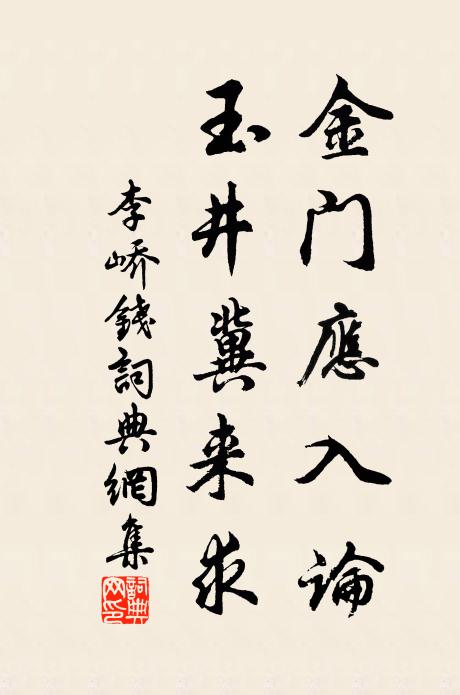 金门應入論
玉井冀来求
李峤錢詞典網集
詞典网印